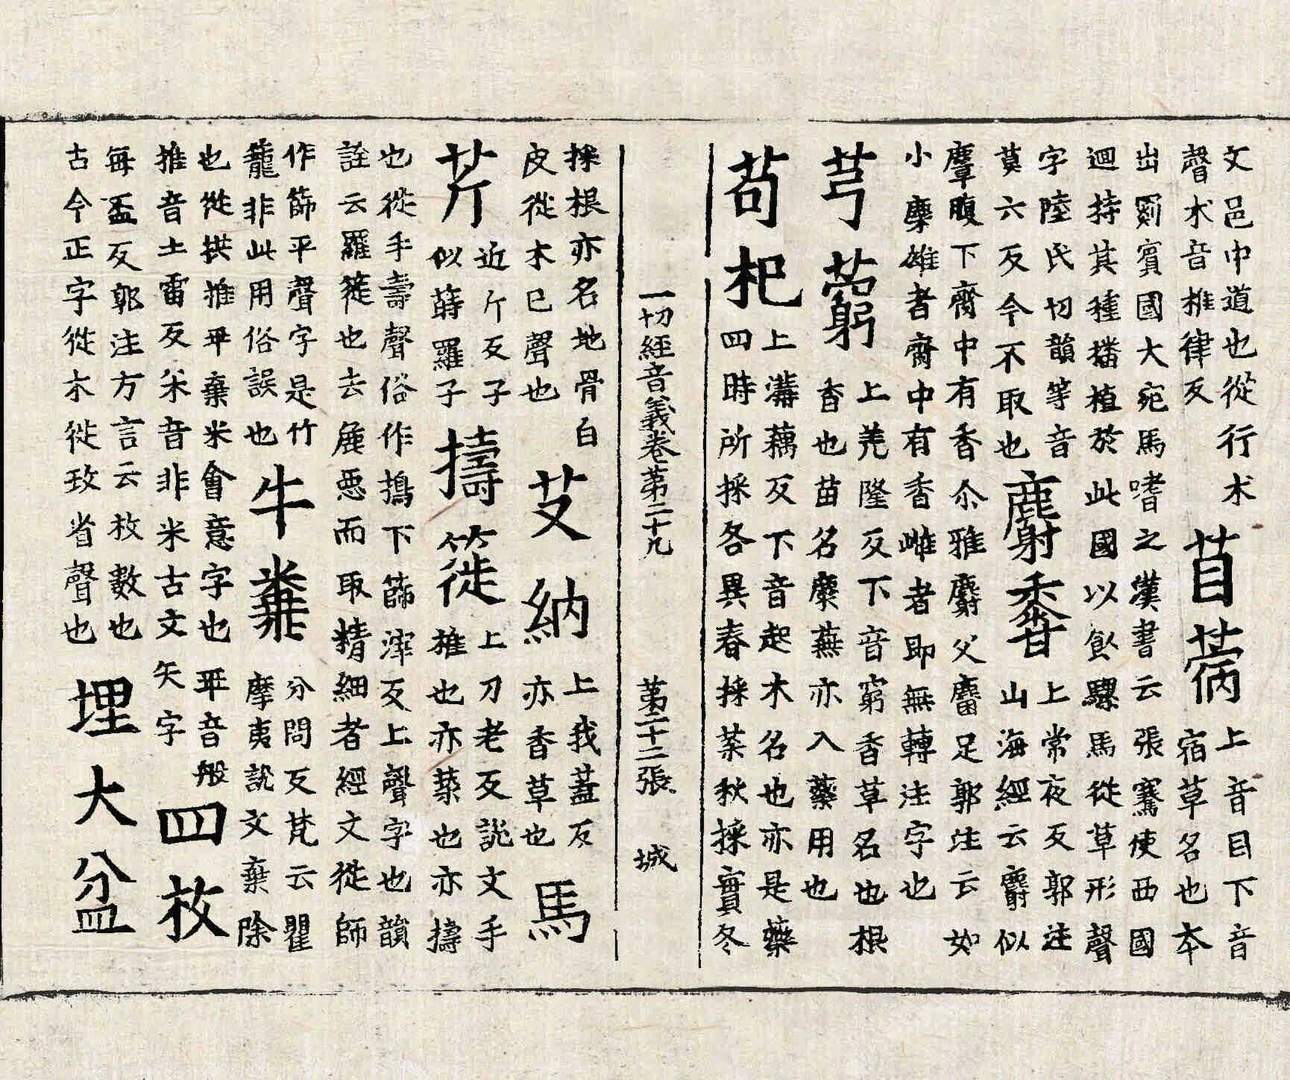 文邑中道也從行术
聲术音椎律反
苜蓿
上音目下音
宿草名也本
出罽賓國大宛馬嗜之漢書云張騫使西國
迴持其種播植於此國以飤騾馬從草形聲
字陸氏切韻等音
莫六反今不取也
麝香
上常夜反郭注
山海經云麝似
麞腹下齎中有香尒雅麝父麕足郭注云如
小麋雄者齎中有香雌者即無轉注字也
芎藭
上羌隆反下音窮香草名也根
香也苗名麋蕪亦入藥用也
苟杞
上溝藕反下音起木名也亦是藥
四時所採各異春採葉秋採實冬
一切經音義卷第二十九 第二十二張 城
採根亦名地骨白
皮從木巳聲也
艾納
上我蓋反
亦香草也
馬
芹
近斤反子
似蒔羅子
擣簁
上刀老反說文手
椎也亦築也亦擣
也從手壽聲俗作搗下篩滓反上聲字也韻
詮云羅簁也去麁惡而取精細者經文從師
作篩平聲字是竹
蘢非此用俗誤也
牛糞
分問反梵云瞿
摩夷說文棄除
也從拱推𠦒棄米會意字也𠦒音般
推音土雷反釆音非米古文矢字
四枚
每盃反郭注方言云枚數也
古今正字從木從攴省聲也
埋大盆